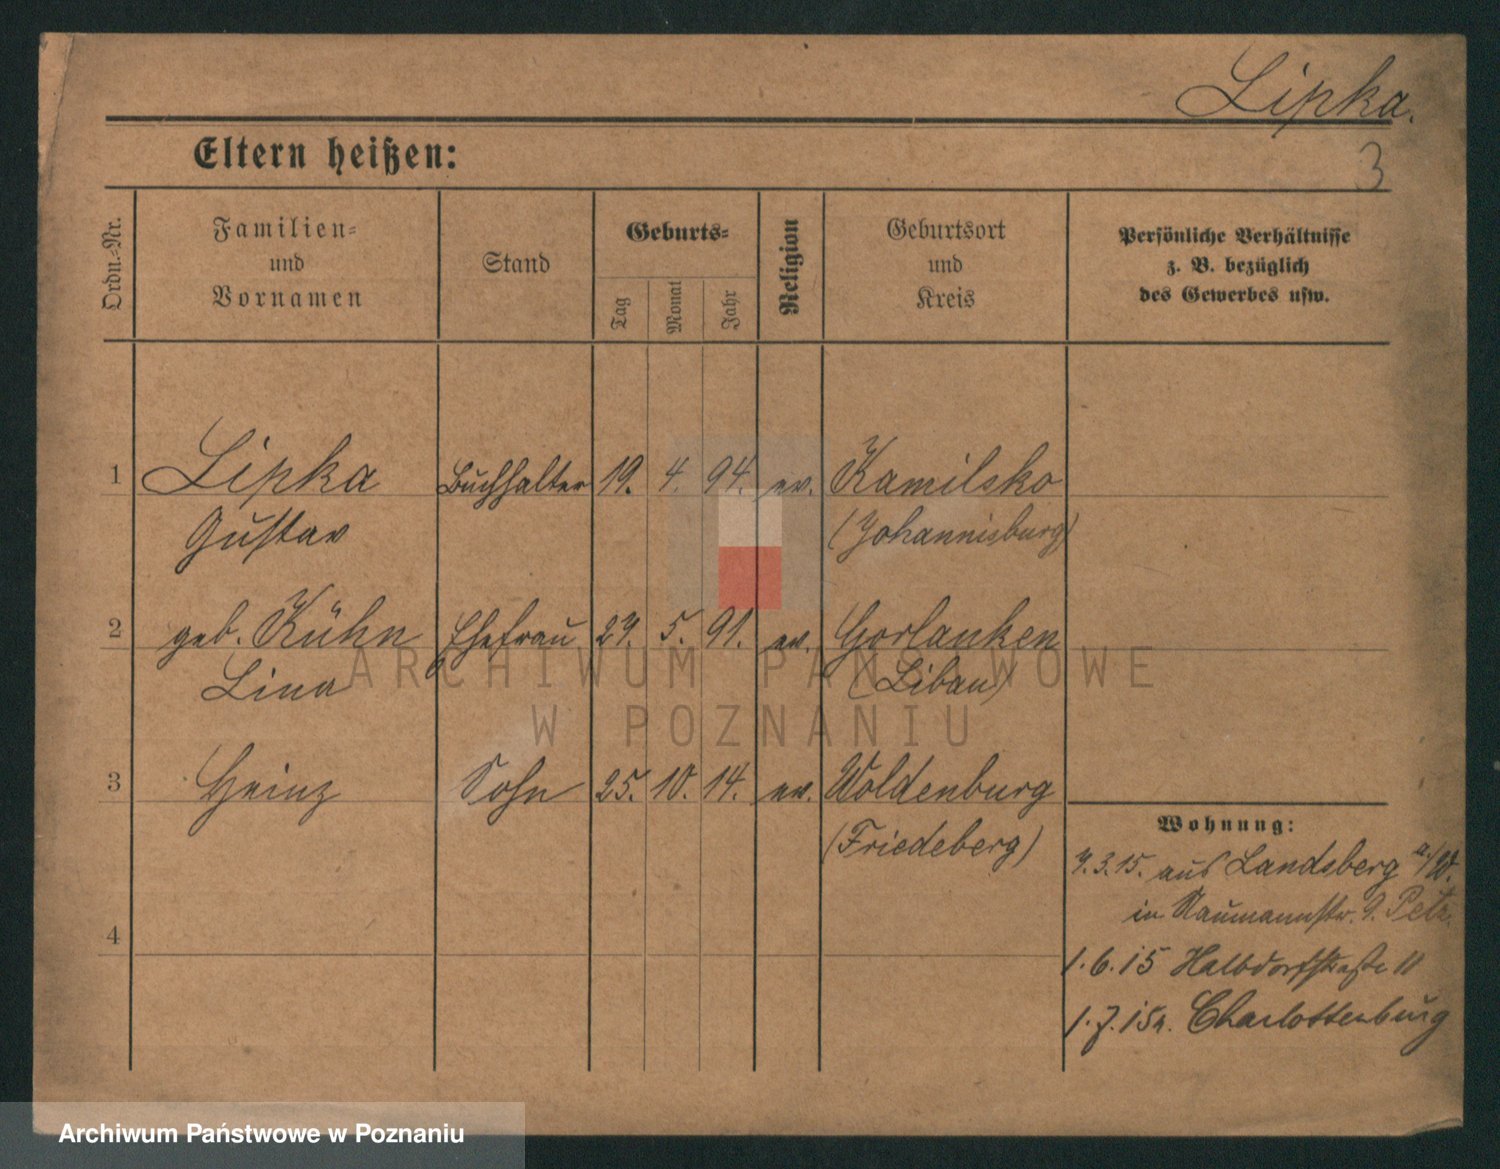 Lipka.
3
Eltern heißen:
Ordn.-Nr.
Familien-
und
Vornamen
Stand
Geburts-
Tag
Monat
Jahr
Religion
Geburtsort
und
Kreis
Persönliche Verhältnisse
z. B. bezüglich
des Gewerbes usw.
1 Lipka Buchhalter 19. 4. 94. ev. Kamilsko
Gustav (Johannisburg)
2 geb. Kühn Ehefrau 27. 5. 91. ev. Gorlauken
Lina (Libau)
3 Heinz Sohn 25. 10. 14. ev. Woldenburg
(Friedeberg)
Wohnung:
7.3.15. aus Landsberg a/W.
in Naumannstr. 9. Petz.
4
1.6.15 Halbdorfstraße 11
1.7.15 n. Charlottenburg
ARCHIWUM PAŃSTWOWE
W POZNANIU
Archiwum Państwowe w Poznaniu